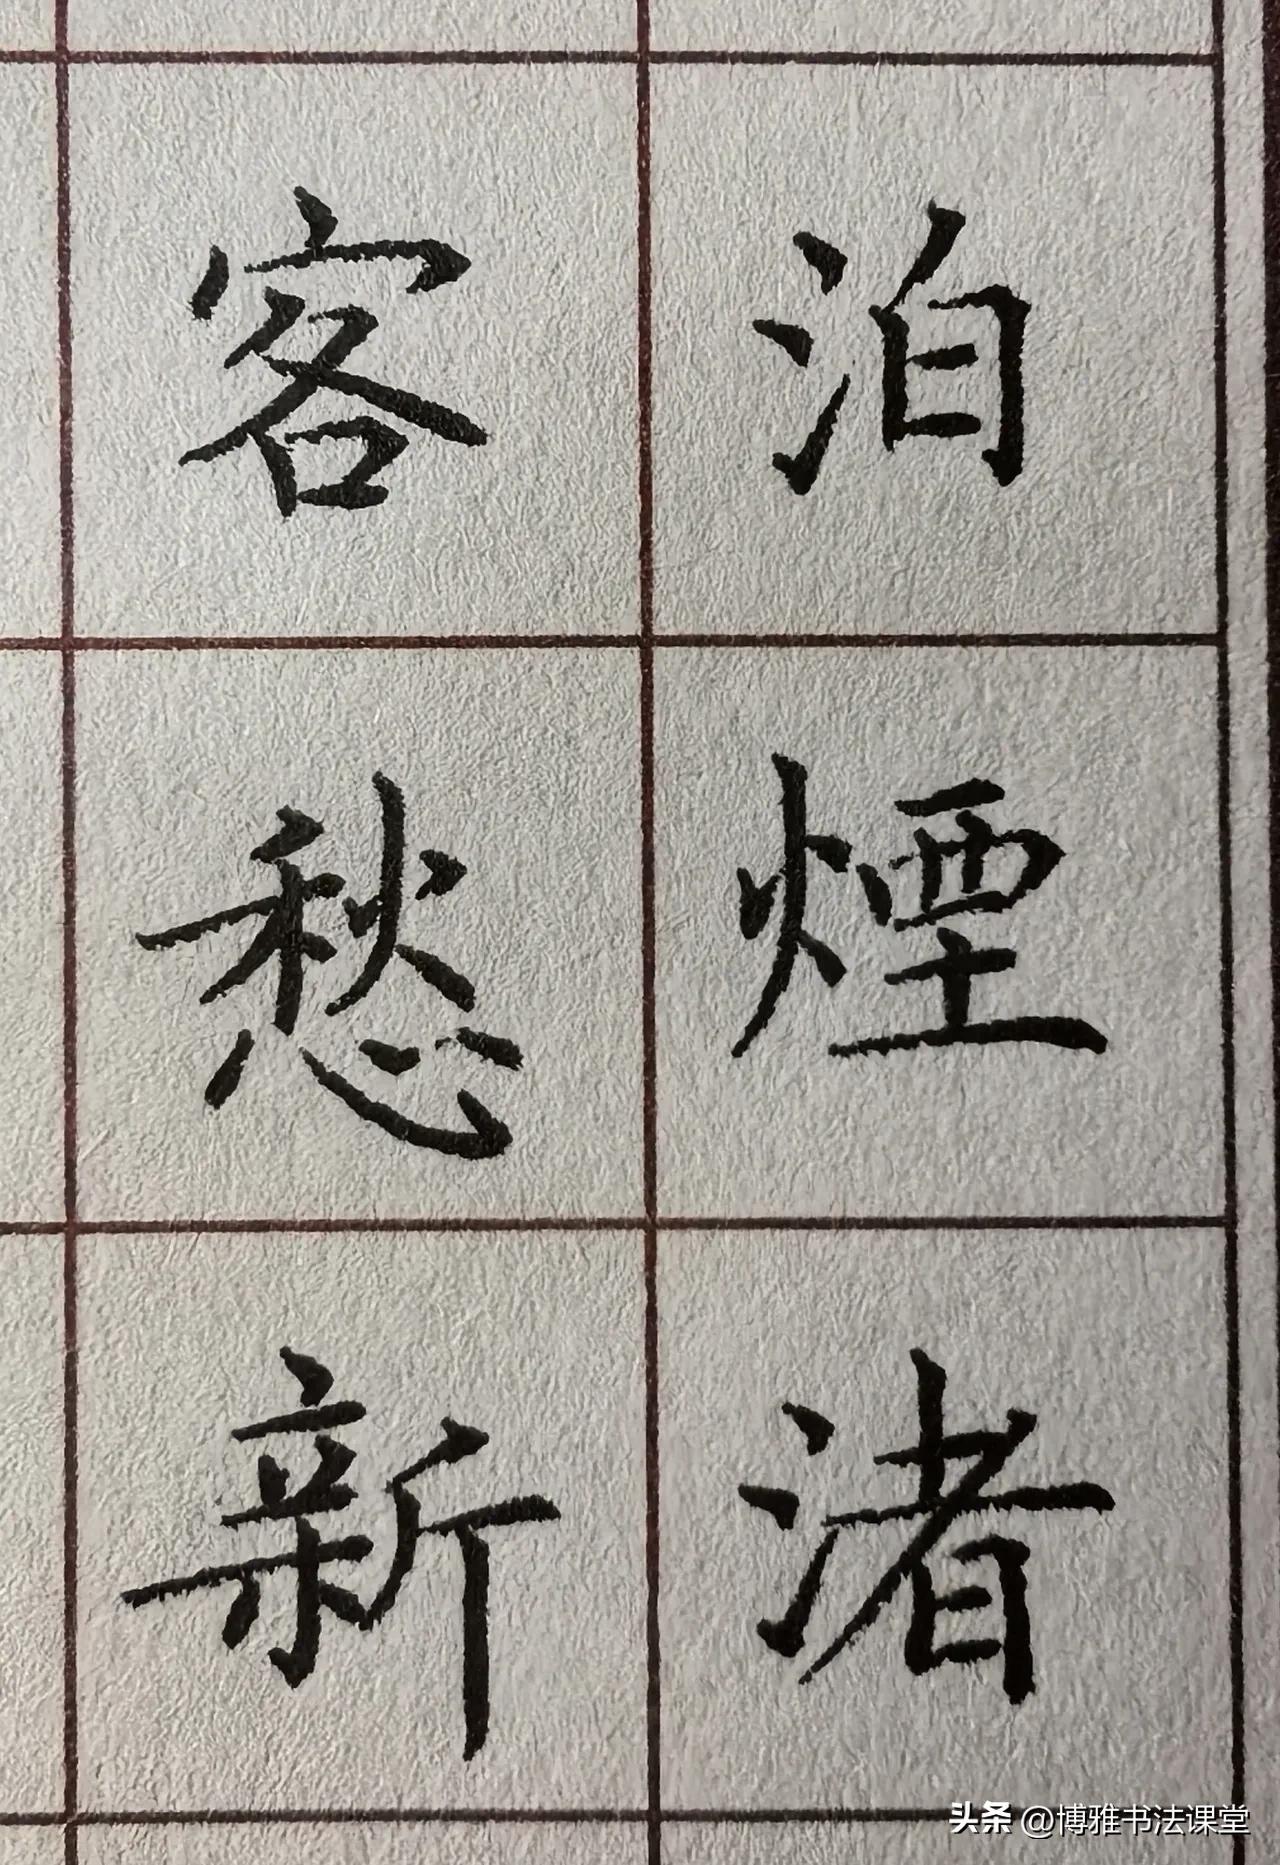 泊煙渚
客愁新
头条 @博雅书法课堂